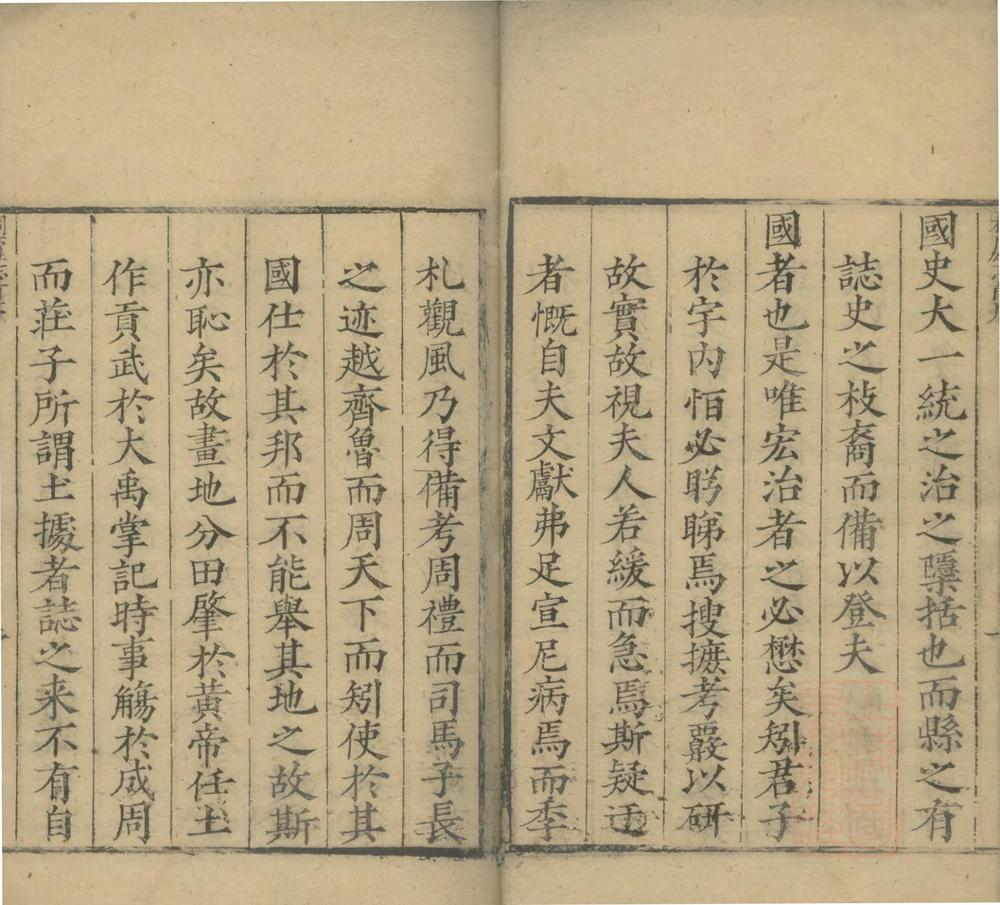 國史大一統之治之檃括也而縣之有
誌史之枝裔而備以登夫
國者也是唯宏治者之必懋矣矧君子
於宇內怕必眝睇焉搜摭考覈以研
故實故視夫人若緩而急焉斯疑迂
者慨自夫文獻弗足宣尼病焉而季
札觀風乃得備考周禮而司馬子長
之迹越齊魯而周天下而矧使於其
國仕於其邦而不能舉其地之故斯
亦恥矣故畫地分田肇於黃帝任土
作貢武於大禹掌記時事觴於成周
而莊子所謂土據者誌之来不有自